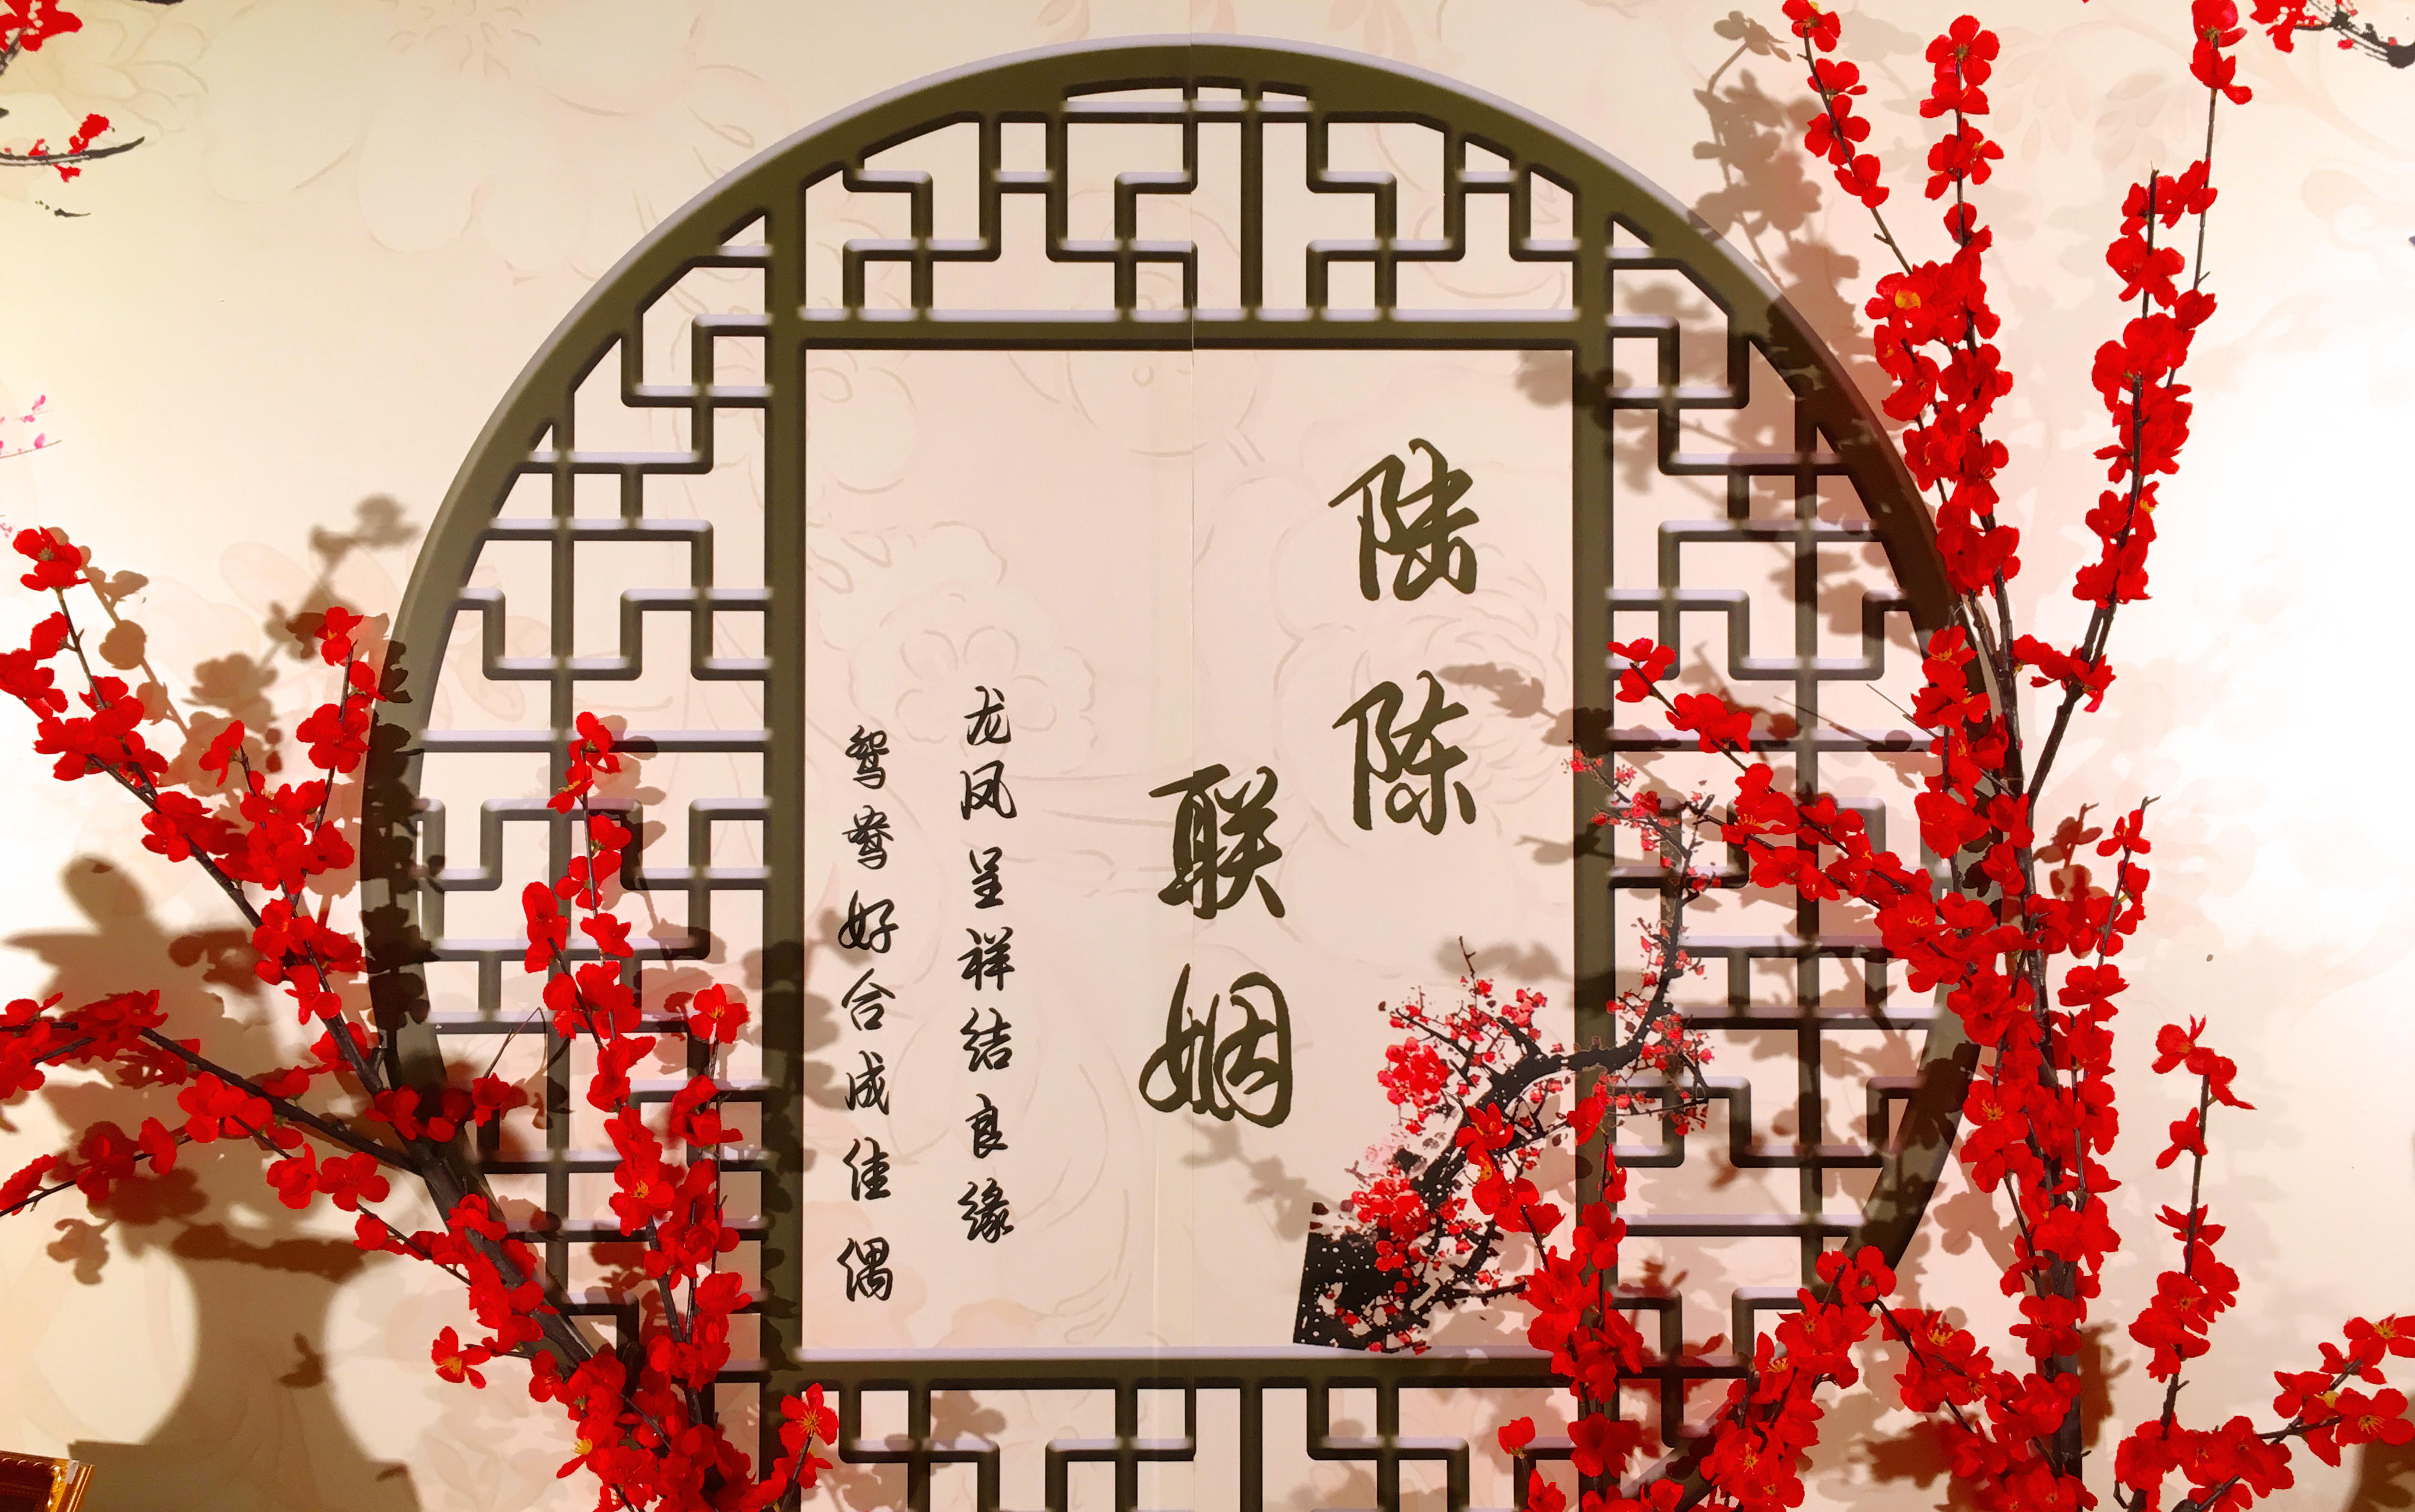 陆陈
联姻
龙凤呈祥结良缘
鸳鸯好合成佳偶